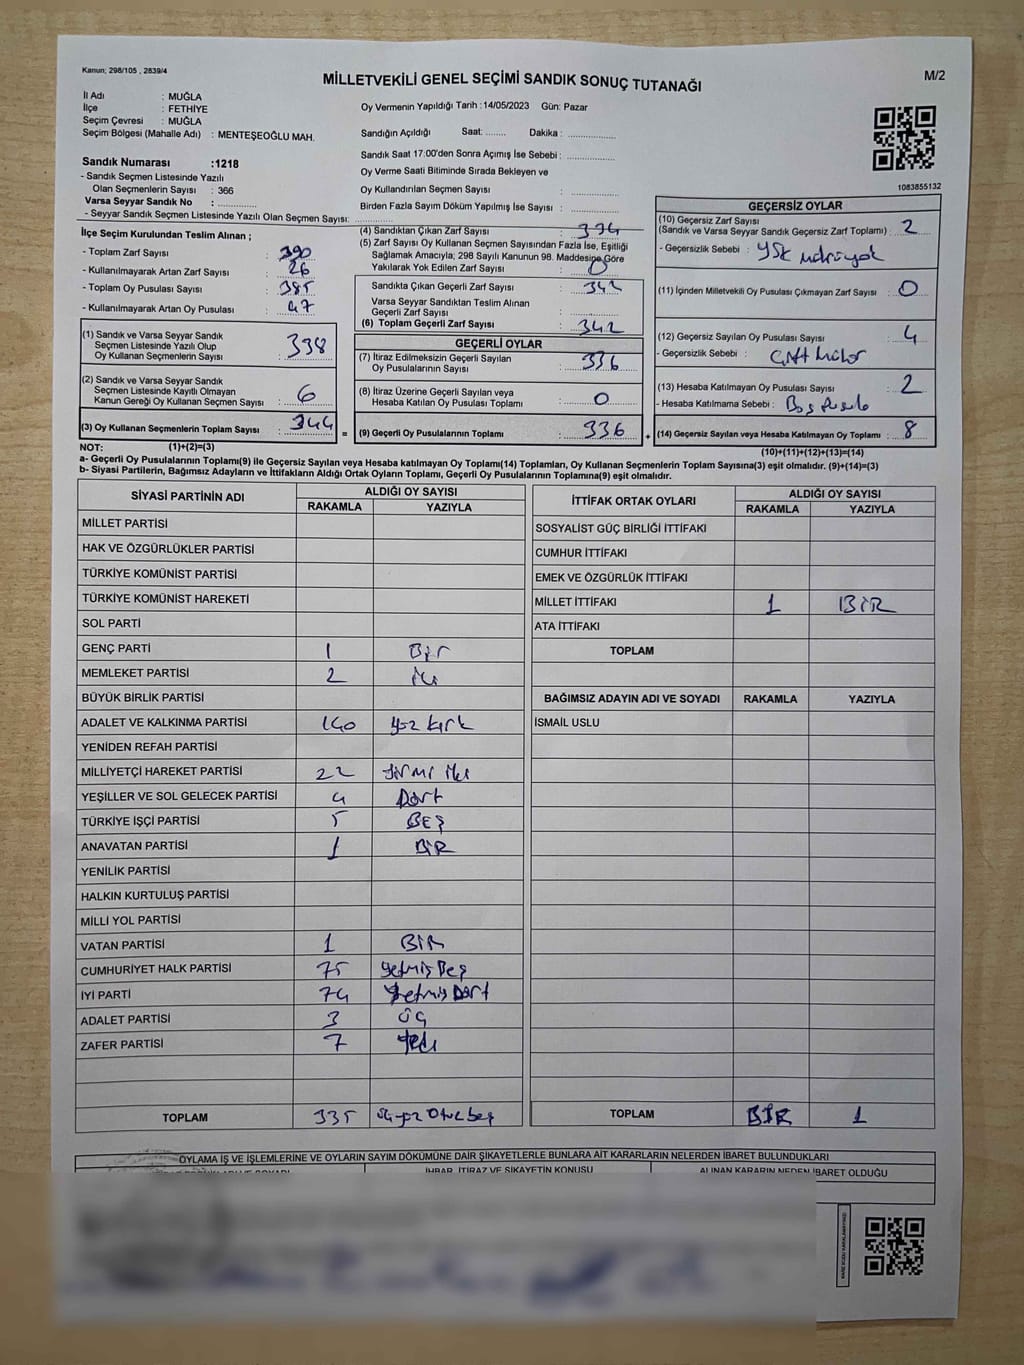 Kanun; 298/105 , 2839/4
MİLLETVEKİLİ GENEL SEÇİMİ SANDIK SONUÇ TUTANAĞI
M/2
İl Adı : MUĞLA
İlçe : FETHİYE
Seçim Çevresi : MUĞLA
Seçim Bölgesi (Mahalle Adı) : MENTEŞEOĞLU MAH.
Oy Vermenin Yapıldığı Tarih :14/05/2023 Gün: Pazar
Sandığın Açıldığı Saat: ........ Dakika : ................
Sandık Saat 17:00'den Sonra Açımış İse Sebebi : ................
Oy Verme Saati Bitiminde Sırada Bekleyen ve
Oy Kullandırılan Seçmen Sayısı : ................
Birden Fazla Sayım Döküm Yapılmış İse Sayısı : ................
Sandık Numarası :1218
- Sandık Seçmen Listesinde Yazılı
Olan Seçmenlerin Sayısı : 366
Varsa Seyyar Sandık No : ..............
- Seyyar Sandık Seçmen Listesinde Yazılı Olan Seçmen Sayısı: ..............
1083855132
İlçe Seçim Kurulundan Teslim Alınan ;
- Toplam Zarf Sayısı : 390
- Kullanılmayarak Artan Zarf Sayısı : 26
- Toplam Oy Pusulası Sayısı : 385
- Kullanılmayarak Artan Oy Pusulası : 47
(1) Sandık ve Varsa Seyyar Sandık
Seçmen Listesinde Yazılı Olup
Oy Kullanan Seçmenlerin Sayısı : 338
(2) Sandık ve Varsa Seyyar Sandık
Seçmen Listesinde Kayıtlı Olmayan
Kanun Gereği Oy Kullanan Seçmen Sayısı : 6
(3) Oy Kullanan Seçmenlerin Toplam Sayısı : 344
(1)+(2)=(3)
(4) Sandıktan Çıkan Zarf Sayısı :
(5) Zarf Sayısı Oy Kullanan Seçmen Sayısından Fazla İse, Eşitliği
Sağlamak Amacıyla; 298 Sayılı Kanunun 98. Maddesine Göre
Yakılarak Yok Edilen Zarf Sayısı : 0
Sandıkta Çıkan Geçerli Zarf Sayısı : 342
Varsa Seyyar Sandıktan Teslim Alınan
Geçerli Zarf Sayısı : ................
(6) Toplam Geçerli Zarf Sayısı : 342
GEÇERLİ OYLAR
(7) İtiraz Edilmeksizin Geçerli Sayılan
Oy Pusulalarının Sayısı : 336
(8) İtiraz Üzerine Geçerli Sayılan veya
Hesaba Katılan Oy Pusulası Toplamı : 0
= (9) Geçerli Oy Pusulalarının Toplamı : 336 +
GEÇERSİZ OYLAR
(10) Geçersiz Zarf Sayısı
(Sandık ve Varsa Seyyar Sandık Geçersiz Zarf Toplamı) : 2
- Geçersizlik Sebebi : YSK
(11) İçinden Milletvekili Oy Pusulası Çıkmayan Zarf Sayısı : 0
(12) Geçersiz Sayılan Oy Pusulası Sayısı : 4
- Geçersizlik Sebebi : Çift Mühür
(13) Hesaba Katılmayan Oy Pusulası Sayısı : 2
- Hesaba Katılmama Sebebi : Boş Pusula
(14) Geçersiz Sayılan veya Hesaba Katılmayan Oy Toplamı : 8
(10)+(11)+(12)+(13)=(14)
NOT:
a- Geçerli Oy Pusulalarının Toplamı(9) ile Geçersiz Sayılan veya Hesaba katılmayan Oy Toplamı(14) Toplamları, Oy Kullanan Seçmenlerin Toplam Sayısına(3) eşit olmalıdır. (9)+(14)=(3)
b- Siyasi Partilerin, Bağımsız Adayların ve İttifakların Aldığı Ortak Oyların Toplamı, Geçerli Oy Pusulalarının Toplamına(9) eşit olmalıdır.
SİYASİ PARTİNİN ADI ALDIĞI OY SAYISI
RAKAMLA YAZIYLA
MİLLET PARTİSİ
HAK VE ÖZGÜRLÜKLER PARTİSİ
TÜRKİYE KOMÜNİST PARTİSİ
TÜRKİYE KOMÜNİST HAREKETİ
SOL PARTİ
GENÇ PARTİ 1 Bir
MEMLEKET PARTİSİ 2 iki
BÜYÜK BİRLİK PARTİSİ
ADALET VE KALKINMA PARTİSİ 140 yüz kırk
YENİDEN REFAH PARTİSİ
MİLLİYETÇİ HAREKET PARTİSİ 22 yirmi iki
YEŞİLLER VE SOL GELECEK PARTİSİ 4 Dört
TÜRKİYE İŞÇİ PARTİSİ 5 BEŞ
ANAVATAN PARTİSİ 1 BİR
YENİLİK PARTİSİ
HALKIN KURTULUŞ PARTİSİ
MİLLİ YOL PARTİSİ
VATAN PARTİSİ 1 BİR
CUMHURİYET HALK PARTİSİ 75 yetmiş Beş
İYİ PARTİ 74 yetmiş Dört
ADALET PARTİSİ 3 üç
ZAFER PARTİSİ 7 yedi
TOPLAM 335 üçyüz Otuz beş
İTTİFAK ORTAK OYLARI ALDIĞI OY SAYISI
RAKAMLA YAZIYLA
SOSYALİST GÜÇ BİRLİĞİ İTTİFAKI
CUMHUR İTTİFAKI
EMEK VE ÖZGÜRLÜK İTTİFAKI
MİLLET İTTİFAKI 1 BİR
ATA İTTİFAKI
TOPLAM
BAĞIMSIZ ADAYIN ADI VE SOYADI RAKAMLA YAZIYLA
İSMAİL USLU
TOPLAM BİR 1
OYLAMA İŞ VE İŞLEMLERİNE VE OYLARIN SAYIM DÖKÜMÜNE DAİR ŞİKAYETLERLE BUNLARA AİT KARARLARIN NELERDEN İBARET BULUNDUKLARI
İHBAR, İTİRAZ VE ŞİKAYETİN KONUSU ALINAN KARARIN NEDEN İBARET OLDUĞU